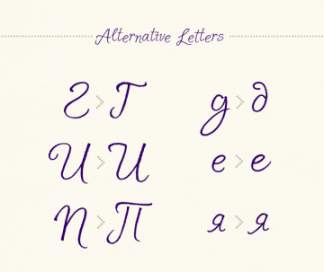 Alternative Letters
Г > Г д > д
И > И е > е
П > П я > я